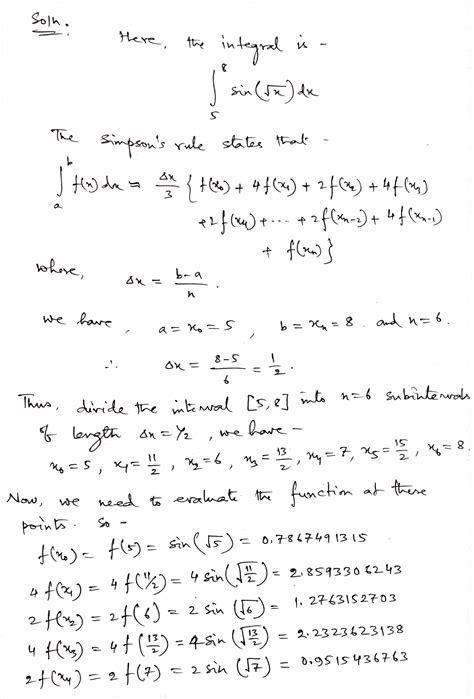 Soln:
Here, the integral is -
∫_5^8 sin(√x) dx
The Simpson's rule states that -
∫_a^b f(x) dx ≈ Δx/3 { f(x₀) + 4f(x₁) + 2f(x₂) + 4f(x₃)
+ 2f(x₄) + ... + 2f(xₙ₋₂) + 4f(xₙ₋₁)
+ f(xₙ) }
where, Δx = b-a/n.
we have, a = x₀ = 5, b = xₙ = 8. and n=6.
∴ Δx = 8-5/6 = 1/2.
Thus, divide the interval [5,8] into n=6 subintervals
of length Δx = 1/2, we have -
x₀ = 5, x₁ = 11/2, x₂ = 6, x₃ = 13/2, x₄ = 7, x₅ = 15/2, x₆ = 8.
Now, we need to evaluate the function at these
points. So -
f(x₀) = f(5) = sin(√5) = 0.7867491315
4f(x₁) = 4f(11/2) = 4 sin(√11/2) = 2.8593306243
2f(x₂) = 2f(6) = 2 sin(√6) = 1.2763152703
4f(x₃) = 4f(13/2) = 4 sin(√13/2) = 2.2323623138
2f(x₄) = 2f(7) = 2 sin(√7) = 0.9515436763